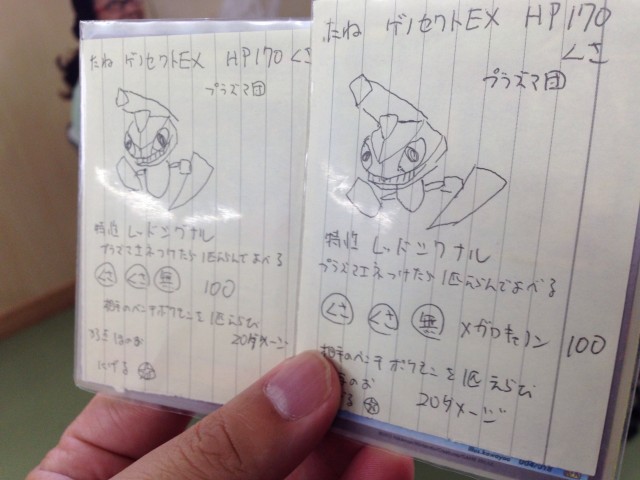 たね ゲノセクトEX HP170 くさ
プラズマ団
特性 レッドシグナル
プラズマエネつけたら1匹えらんでよべる
くさ くさ 無 100
相手のベンチポケモンを1匹えらび
20ダメージ
弱点ほのお
にげる
たね ゲノセクトEX HP170
くさ
プラズマ団
特性 レッドシグナル
プラズマエネつけたら1匹えらんでよべる
くさ くさ 無 メガロキャノン 100
相手のベンチポケモンを1匹えらび
のお 20ダメージ
る